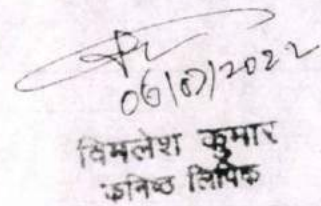 06/07/2022
विमलेश कुमार
कनिष्ठ लिपिक